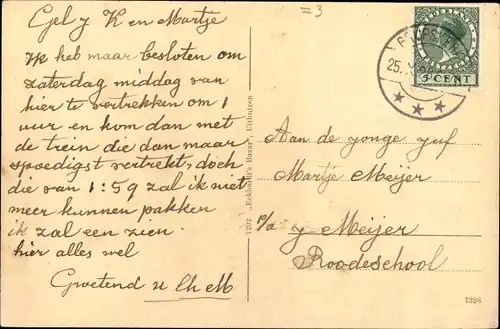 =3
Gel y K en Martje
Ik heb maar besloten om
zaterdag middag van
hier te vertrekken om 1
uur en kom dan met
de trein die dan maar
spoedigst vertrekt, doch
die van 1:59 zal ik niet
meer kunnen pakken
ik zal een zien.
hier alles wel
Groetend u Ch M
5292 "Eekhoff's Bazar", Uithuizen
25.
5 CENT
Aan de jonge juf
Martje Meijer
p/a y Meijer
Roodeschool
7326